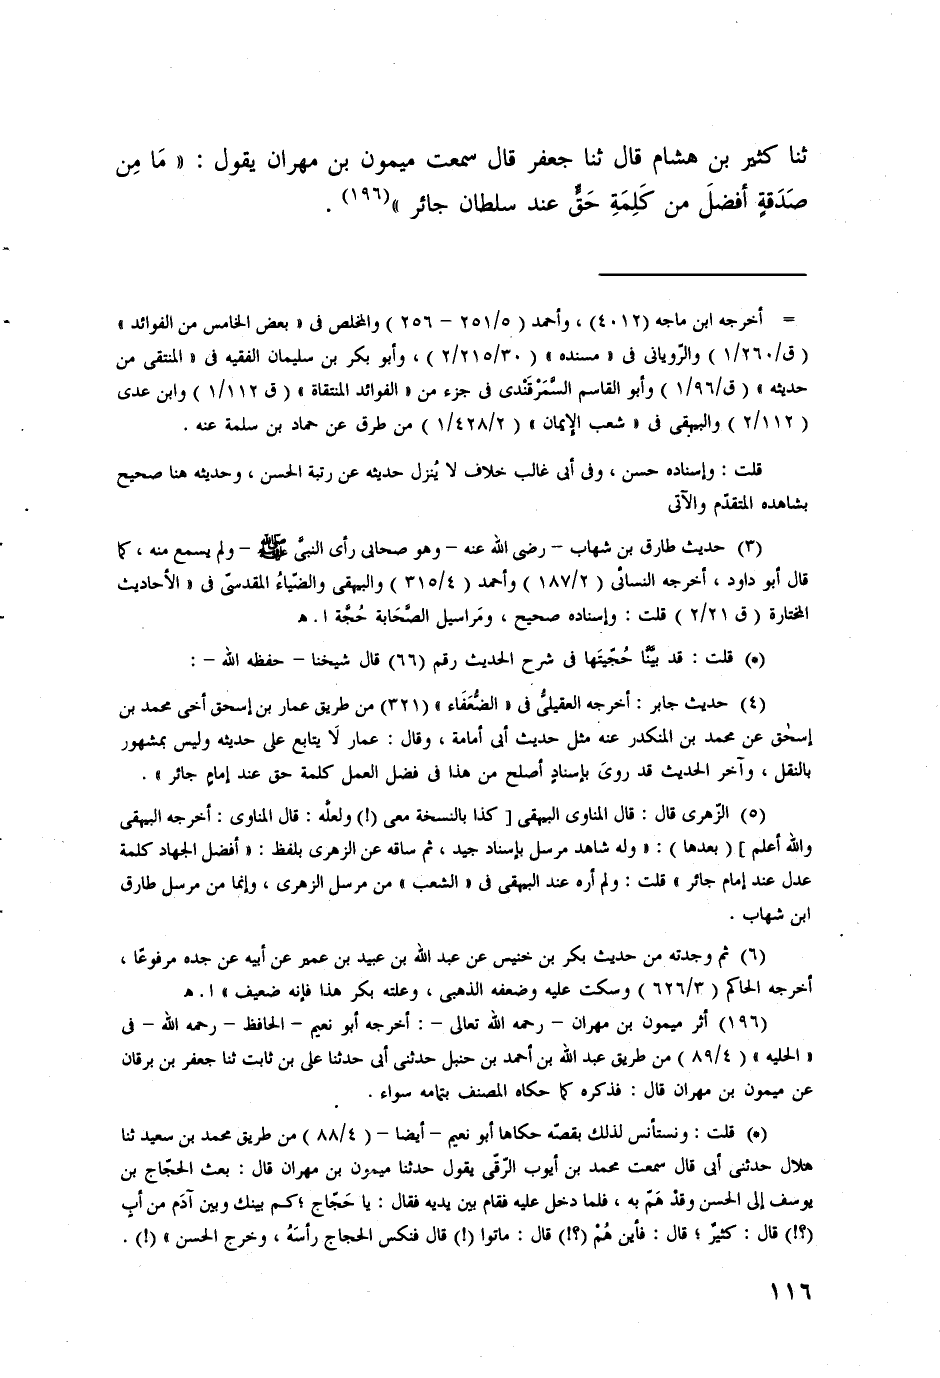 ثنا كثير بن هشام قال ثنا جعفر قال سمعت ميمون بن مهران يقول : « مَا مِن
صَدَقةٍ أفضلَ من كَلِمَةِ حَقٍّ عند سلطان جائر »(١٩٦) .
= أخرجه ابن ماجه (٤٠١٢) ، وأحمد ( ٢٥١/٥ – ٢٥٦ ) والمخلص فى « بعض الخامس من الفوائد »
( ق/١/٢٦٠ ) والرّويانى فى « مسنده » ( ٢/٢١٥/٣٠ ) ، وأبو بكر بن سليمان الفقيه فى « المنتقى من
حديثه » ( ق/١/٩٦ ) وأبو القاسم السَّمَرْقَندى فى جزء من « الفوائد المنتقاة » ( ق ١/١١٢ ) وابن عدى
( ٢/١١٢ ) والبيهقى فى « شعب الإيمان » ( ١/٤٢٨/٢ ) من طرق عن حماد بن سلمة عنه .
قلت : وإسناده حسن ، وفى أبى غالب خلاف لا يُنزل حديثه عن رتبة الحسن ، وحديثه هنا صحيح
بشاهده المتقدّم والآتى
(٣) حديث طارق بن شهاب – رضى الله عنه – وهو صحابى رأى النبىَّ ﷺ – ولم يسمع منه ، كما
قال أبو داود ، أخرجه النسائى ( ١٨٧/٢ ) وأحمد ( ٣١٥/٤ ) والبيهقى والضّياءُ المقدسىّ فى « الأحاديث
المختارة ( ق ٢/٢١ ) قلت : وإسناده صحيح ، ومَراسيل الصَّحَابة حُجَّة ا . هـ
(*) قلت : قد بيَّنَّا حُجّيتَها فى شرح الحديث رقم (٦٦) قال شيخنا – حفظه الله – :
(٤) حديث جابر : أخرجه العقيلىُّ فى « الضُّعَفَاء » (٣٢١) من طريق عمار بن إسحق أخى محمد بن
إسحٰق عن محمد بن المنكدر عنه مثل حديث أبى أمامة ، وقال : عمار لَا يتابع على حديثه وليس بمشهور
بالنقل ، وآخر الحديث قد روىَ بإسنادٍ أصلح من هذا فى فضل العمل كلمة حق عند إمامٍ جائر » .
(٥) الزّهرى قال : قال المناوى البيهقى [ كذا بالنسخة معى (!) ولعلّه : قال المناوى : أخرجه البيهقى
والله أعلم ] ( بعدها ) : « وله شاهد مرسل بإسناد جيد ، ثم ساقه عن الزهرى بلفظ : « أفضل الجهاد كلمة
عدل عند إمام جائر » قلت : ولم أره عند البيهقى فى « الشعب » من مرسل الزهرى ، وإنما من مرسل طارق
ابن شهاب .
(٦) ثم وجدته من حديث بكر بن خنيس عن عبد الله بن عبيد بن عمير عن أبيه عن جده مرفوعًا ،
أخرجه الحاكم ( ٦٢٦/٣ ) وسكت عليه وضعفه الذهبى ، وعلته بكر هذا فإنه ضعيف » ا . هـ
(١٩٦) أثر ميمون بن مهران – رحمه الله تعالى – : أخرجه أبو نعيم – الحافظ – رحمه الله – فى
« الحليه » ( ٨٩/٤ ) من طريق عبد الله بن أحمد بن حنبل حدثنى أبى حدثنا على بن ثابت ثنا جعفر بن برقان
عن ميمون بن مهران قال : فذكره كما حكاه المصنف بتمامه سواء .
(*) قلت : ونستأنس لذلك بقصّه حكاها أبو نعيم – أيضا – ( ٨٨/٤ ) من طريق محمد بن سعيد ثنا
هلال حدثنى أبى قال سمعت محمد بن أيوب الرّقّى يقول حدثنا ميمون بن مهران قال : بعث الحجّاج بن
يوسف إلى الحسن وقدْ هَمّ به ، فلما دخل عليه فقام بين يديه فقال : يا حَجّاج ؛كم بينك وبين آدَم من أبٍ
(؟!) قال : كثيرٌ ؛ قال : فأين هُمْ (؟!) قال : ماتوا (!) قال فنكس الحجاج رأسَهُ ، وخرج الحسن » (!) .
١١٦